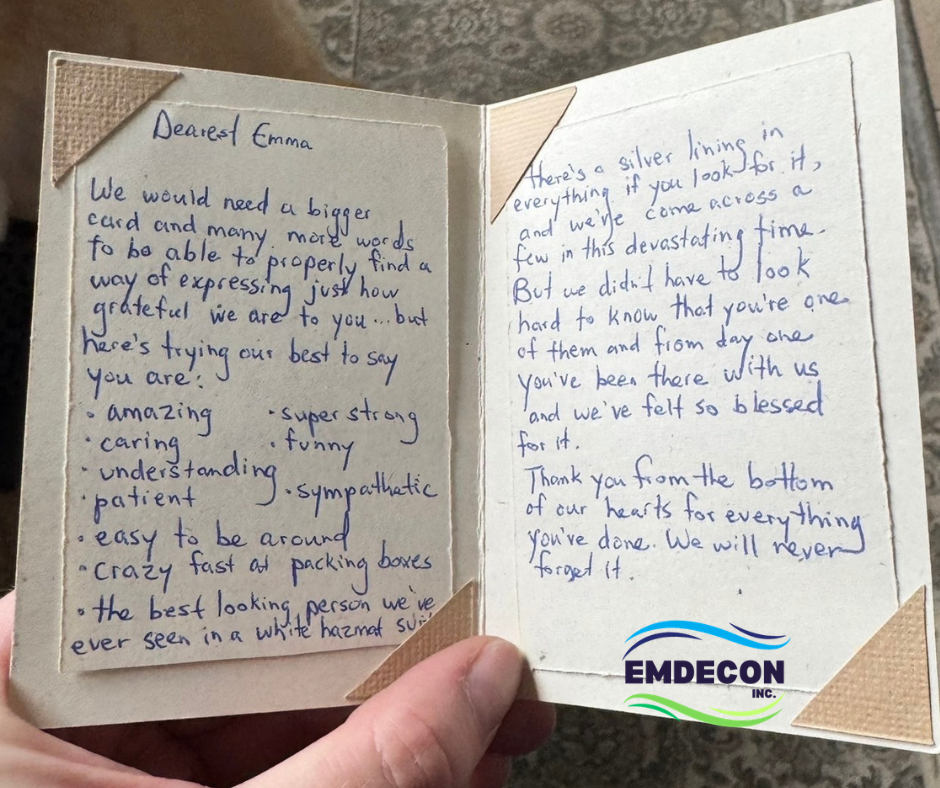 Dearest Emma
We would need a bigger
card and many more words
to be able to properly find a
way of expressing just how
grateful we are to you...but
here's trying our best to say
you are:
• amazing
• caring
• understanding
• patient
• super strong
• funny
• sympathetic
• easy to be around
• crazy fast at packing boxes
• the best looking person we've
ever seen in a white hazmat
there's a silver lining in
everything if you look for it,
and we've come across a
few in this devastating time.
But we didn't have to look
hard to know that you're one
of them and from day one
you've been there with us
and we've felt so blessed
for it.
Thank you from the bottom
of our hearts for everything
you've done. We will never
forget it.
EMDECON
INC.